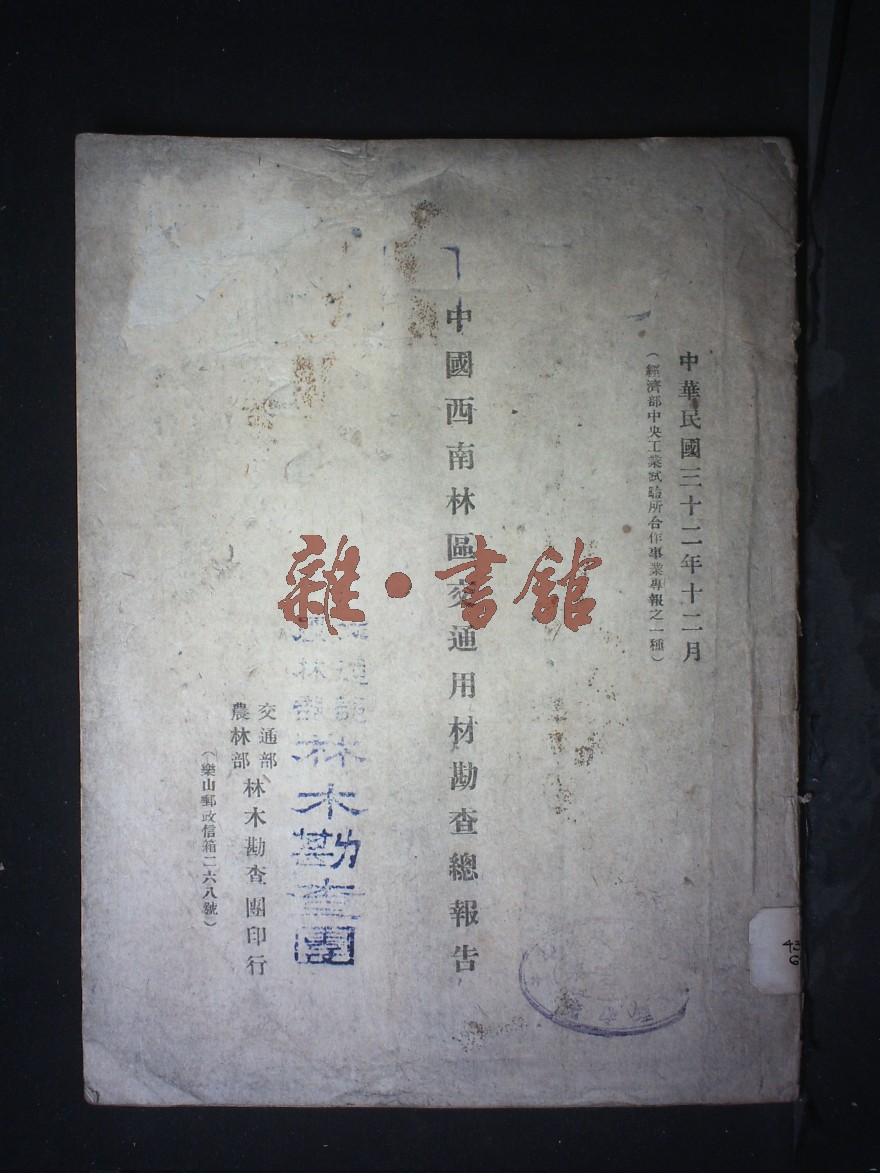 中華民國三十二年十二月
（經濟部中央工業試驗所合作事業專報之一種）
中國西南林區交通用材勘查總報告
交通部
農林部
林木勘查團
交通部
農林部
林木勘查團印行
（樂山郵政信箱二六八號）
雜·書館